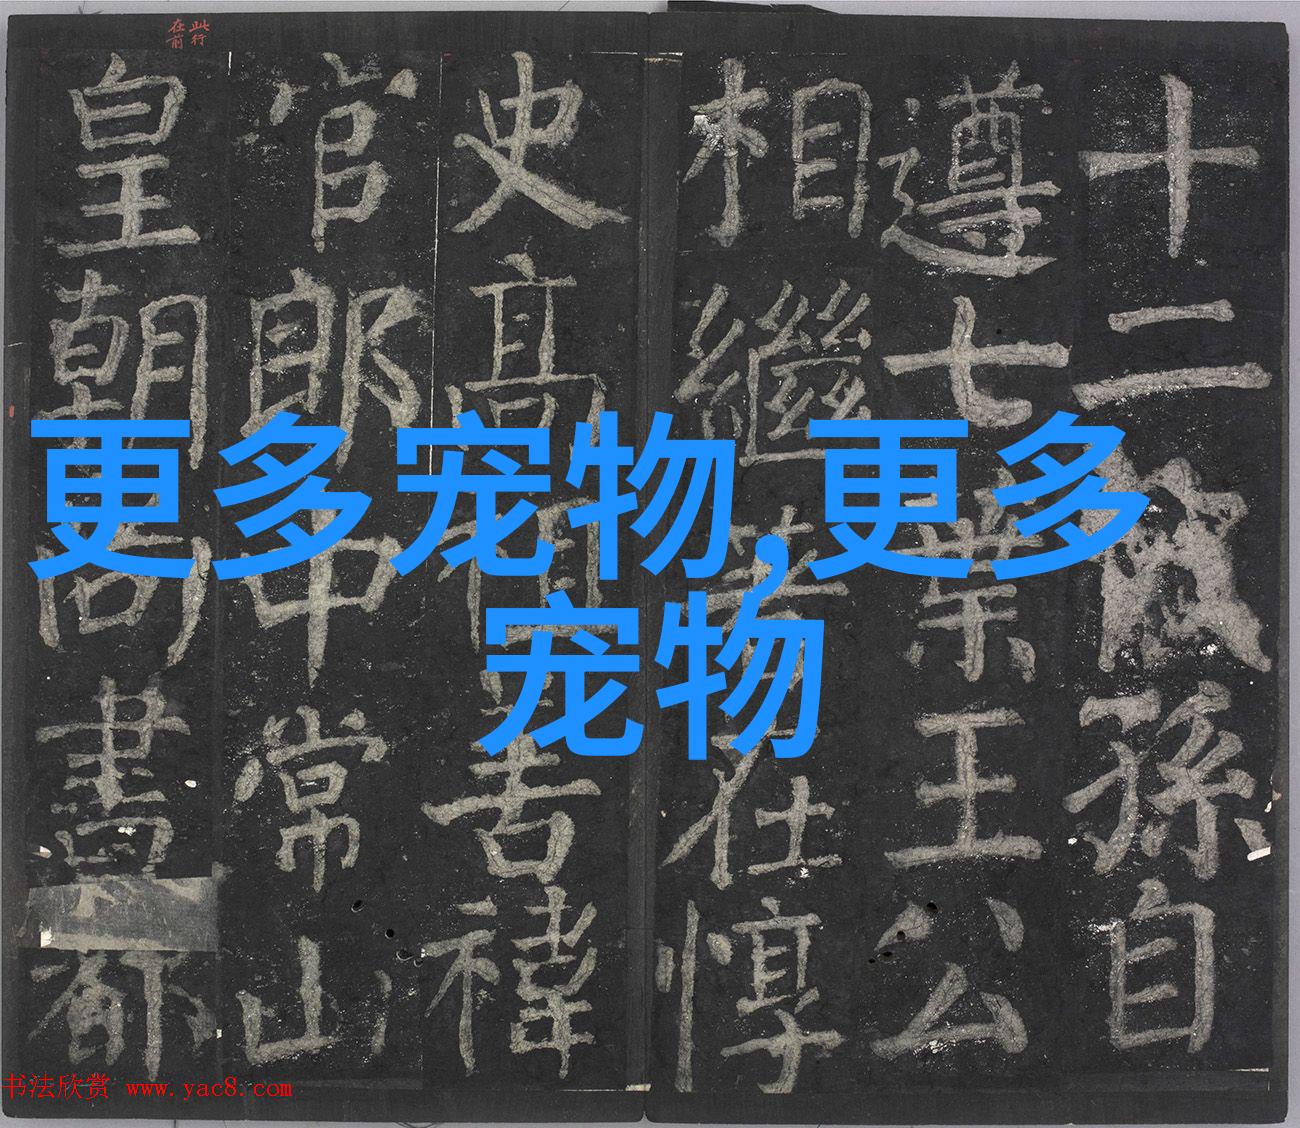 此行
在前
十二孫自
遵七王公
相繼著在惇
史高吉禕
官郎中常山
皇朝尚書都
更多宠物,更多
宠物
书法欣赏 www.yac8.com